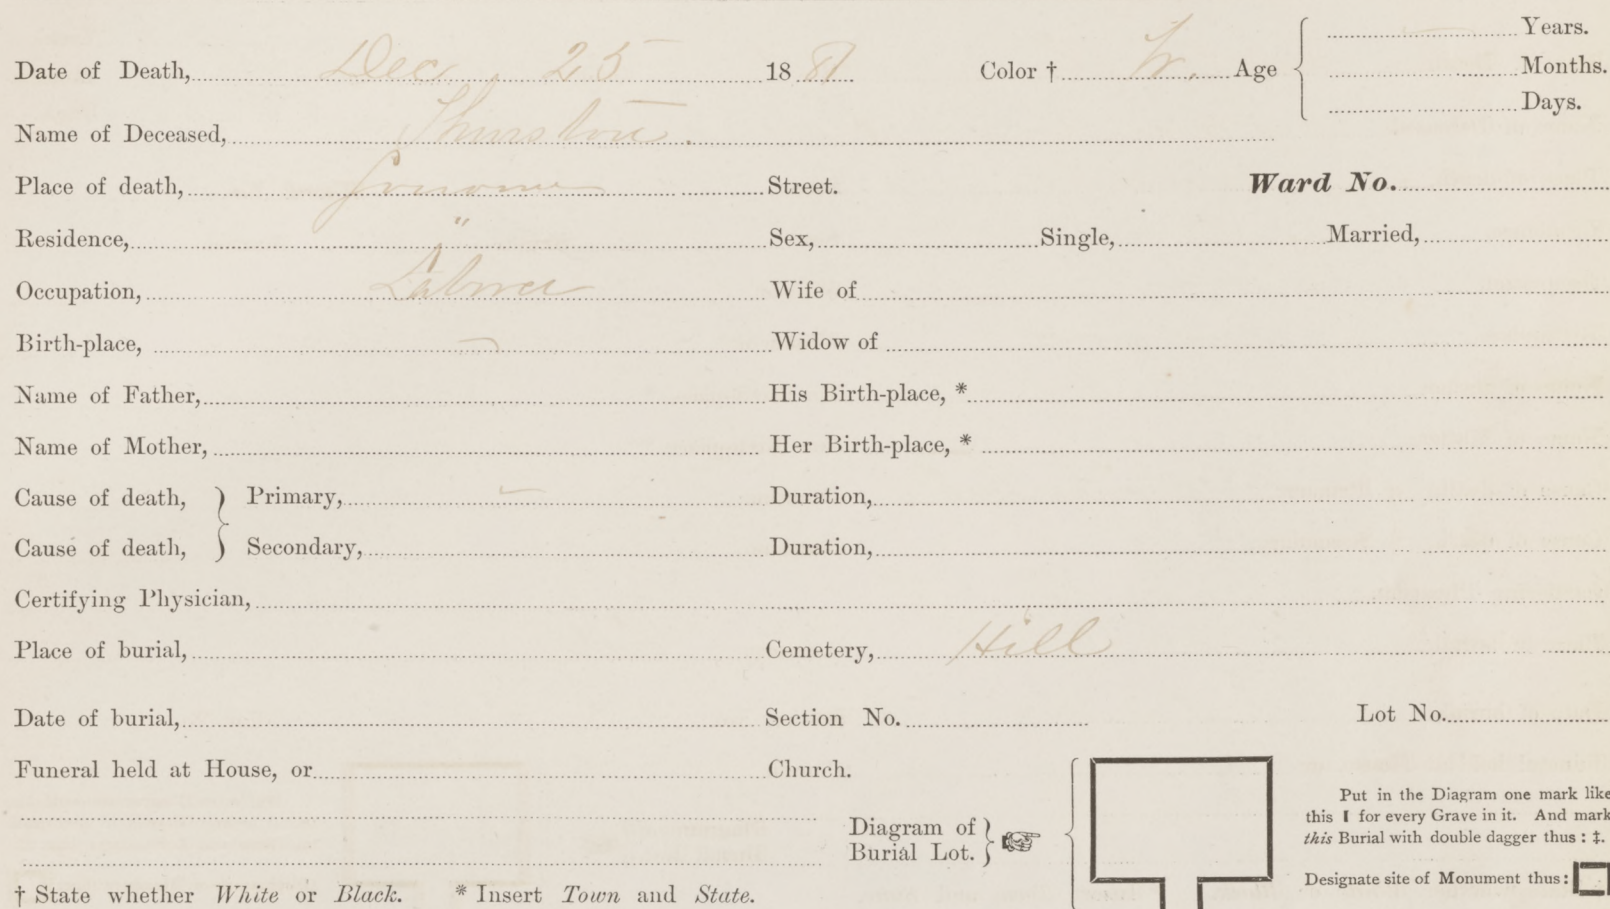 Date of Death, Dec. 25 1881 Color † W. Age Years.
Months.
Days.
Name of Deceased, Thurston.
Place of death, Sonoma Street. Ward No.
Residence, " Sex, Single, Married,
Occupation, Laborer Wife of
Birth-place, Widow of
Name of Father, His Birth-place, *
Name of Mother, Her Birth-place, *
Cause of death, } Primary, Duration,
Cause of death, } Secondary, Duration,
Certifying Physician,
Place of burial, Cemetery, Hill
Date of burial, Section No. Lot No.
Funeral held at House, or Church.
Diagram of
Burial Lot.
Put in the Diagram one mark like
this I for every Grave in it. And mark
this Burial with double dagger thus : ‡.
Designate site of Monument thus:
† State whether White or Black. * Insert Town and State.